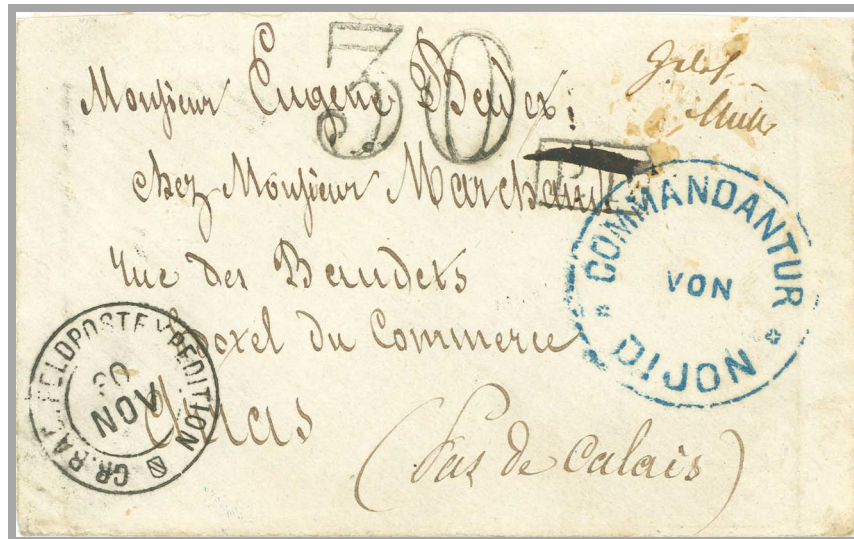 30
Monsieur Eugène
chez Monsieur Marchand
P.D.
rue des Baudets
hotel du Commerce
Arras
(Pas de Calais)
* COMMANDANTUR *
VON
DIJON
GR. BAD. FELDPOSTEXPEDITION
30
NOV